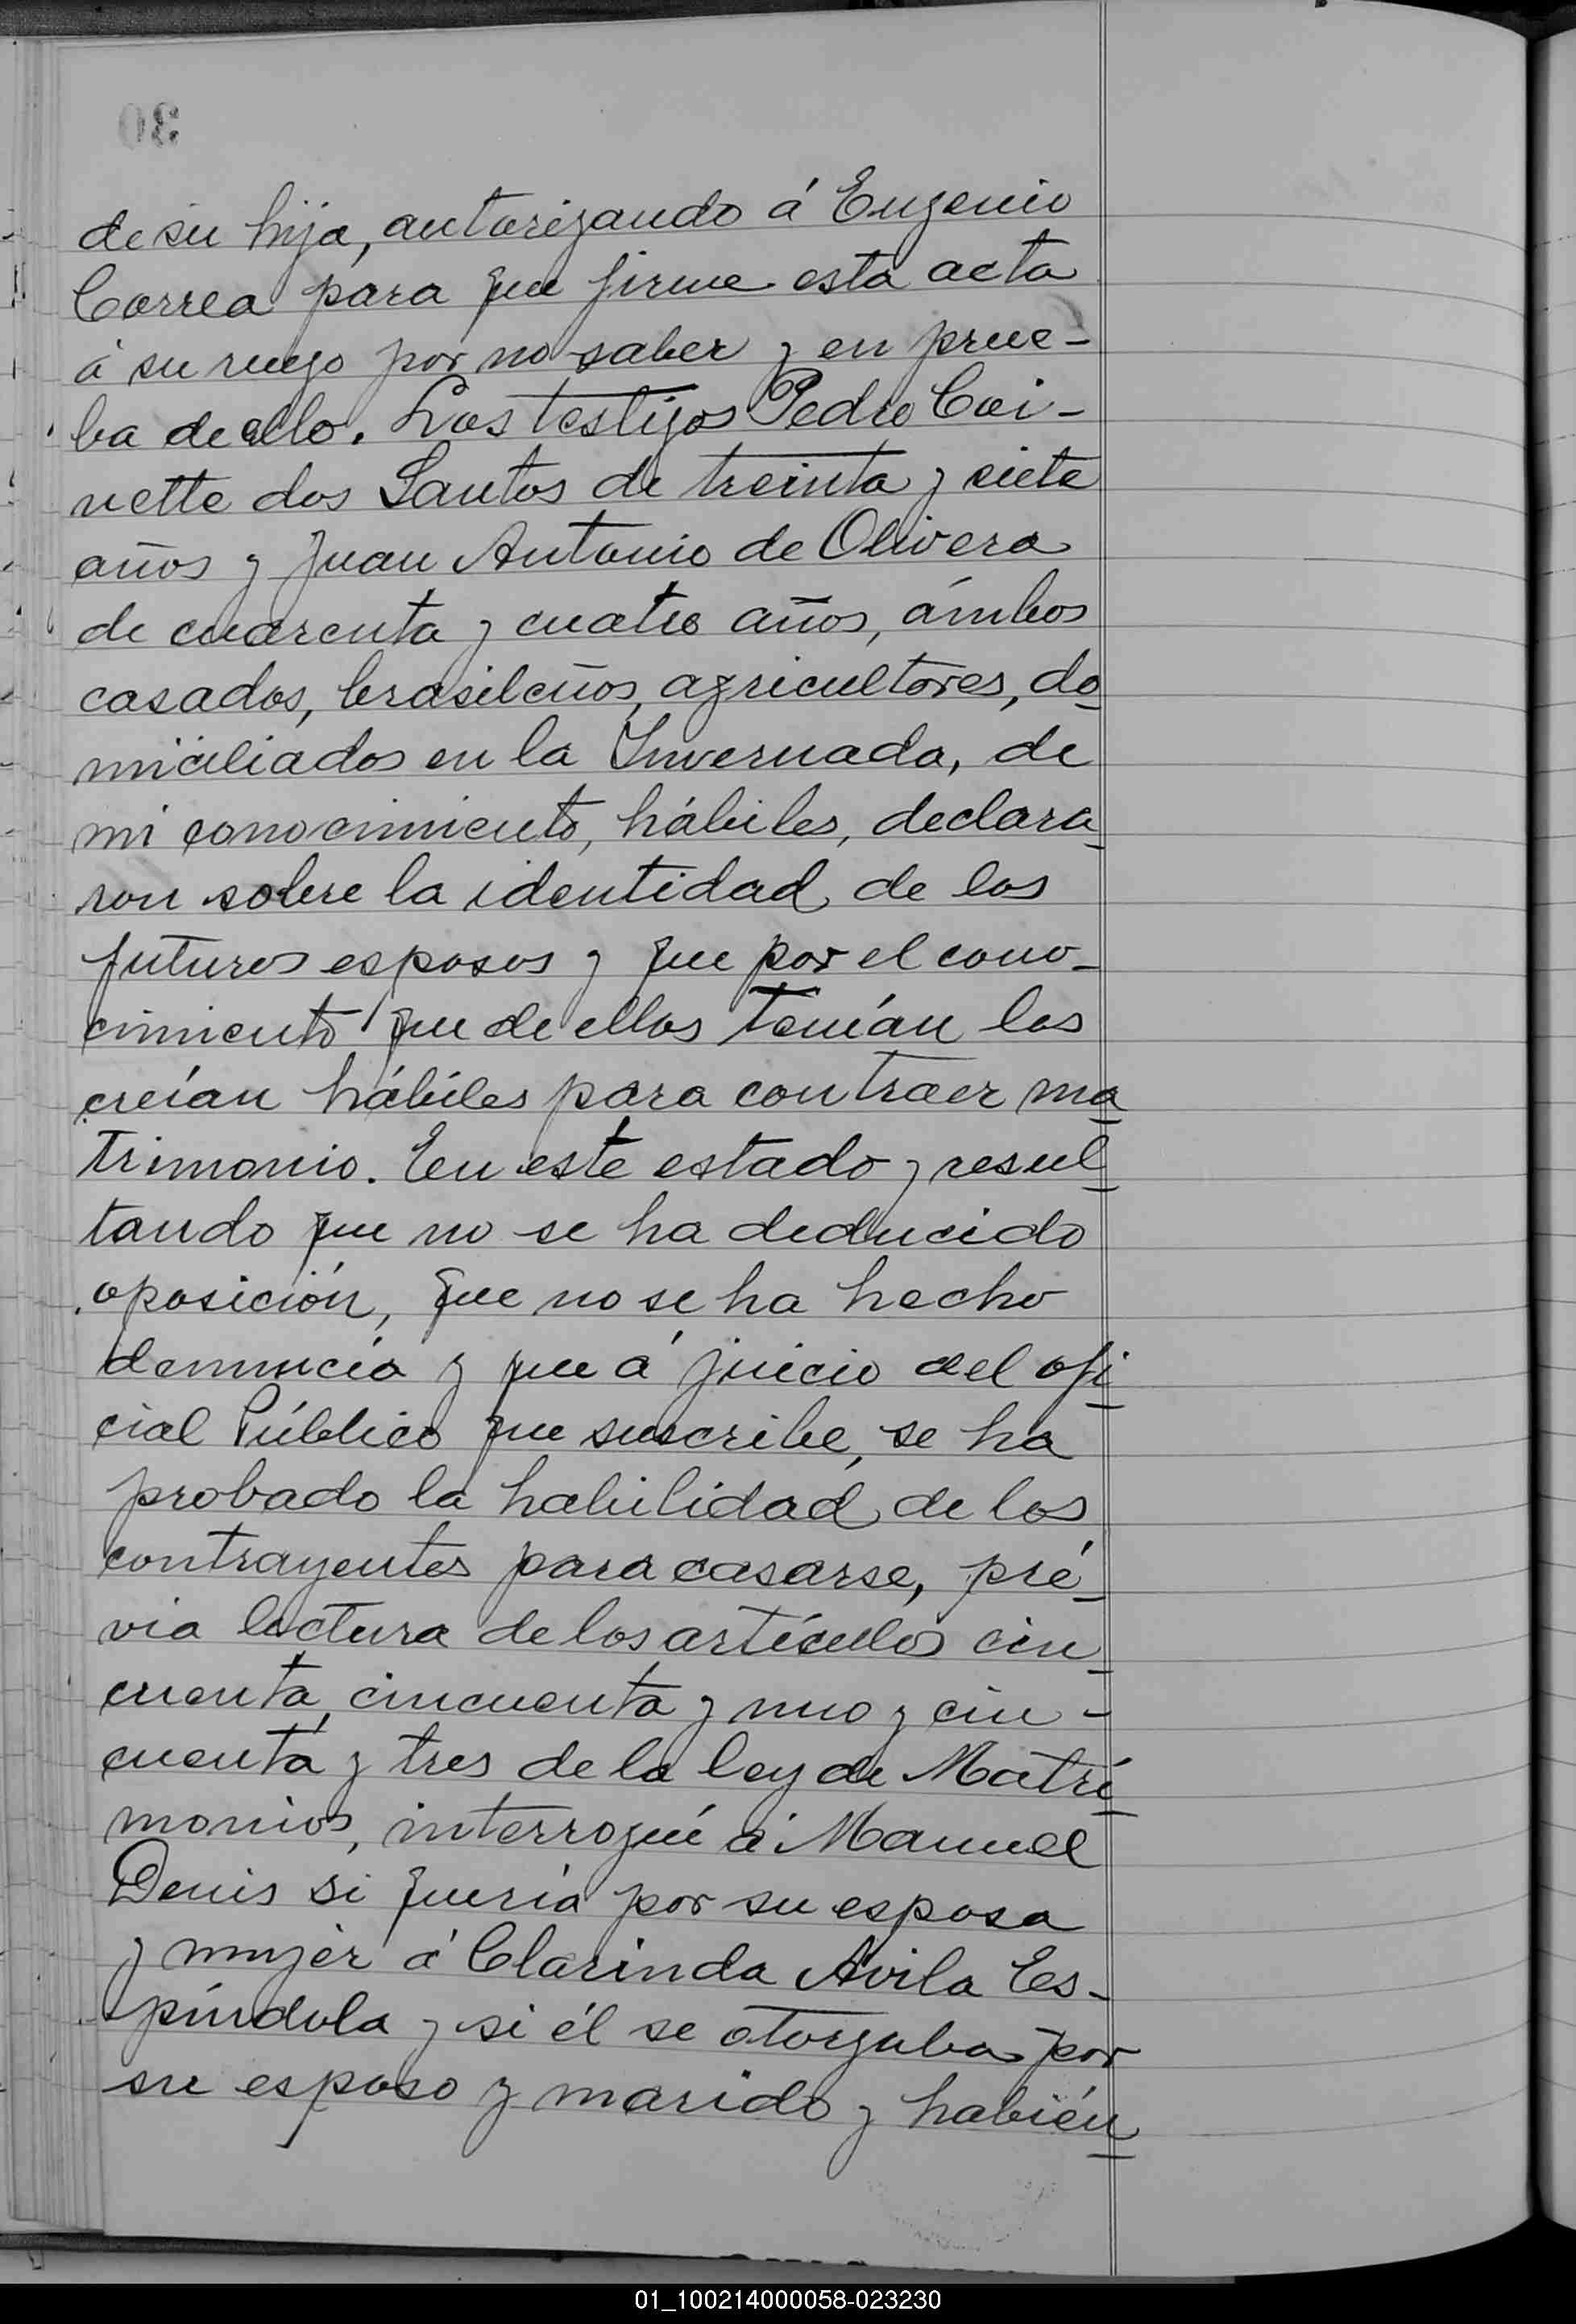 de su hija, autorizando á Eugenio
Correa para que firme esta acta
á su ruego por no saber y en prue-
ba de ello. Los testigos Pedro Coi-
nette dos Santos de treinta y siete
años y Juan Antonio de Olivera
de cuarenta y cuatro años, ámbos
casados, brasileños, agricultores, do_
miciliados en la Invernada, de
mi conocimiento, hábiles, declara_
ron sobre la identidad de los
futuros esposos y que por el cono_
cimiento que de ellos tenían los
creían hábiles para contraer ma_
trimonio. En este estado y resul_
tando que no se ha deducido
oposición, que no se ha hecho
denuncia y que á juicio del ofi_
cial Público que suscribe, se ha
probado la habilidad de los
contrayentes para casarse, pré_
via lectura de los artículos cin_
cuenta, cincuenta y uno y cin-
cuenta y tres de la ley de Matri_
monios, interrogué á Manuel
Denis si quería por su esposa
y mujer á Clarinda Avila Es-
píndola y si él se otorgaba por
su esposo y marido y habién_
01_100214000058-023230